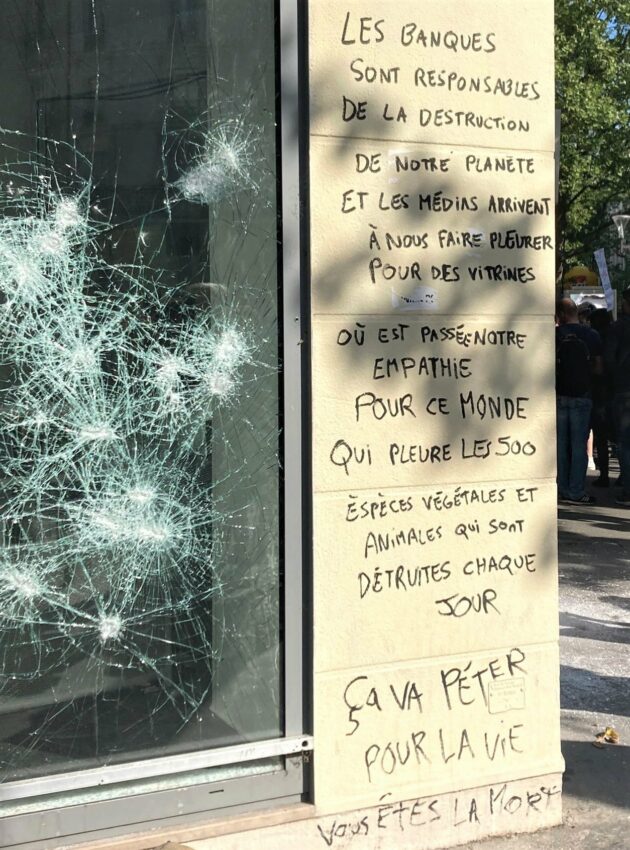 LES BANQUES
SONT RESPONSABLES
DE LA DESTRUCTION
DE NOTRE PLANÈTE
ET LES MÉDIAS ARRIVENT
À NOUS FAIRE PLEURER
POUR DES VITRINES
OÙ EST PASSÉE NOTRE
EMPATHIE
POUR CE MONDE
QUI PLEURE LES 500
ÈSPÈCES VÉGÉTALES ET
ANIMALES QUI SONT
DÉTRUITES CHAQUE
JOUR
ÇA VA PÉTER
POUR LA VIE
VOUS ÊTES LA MORT